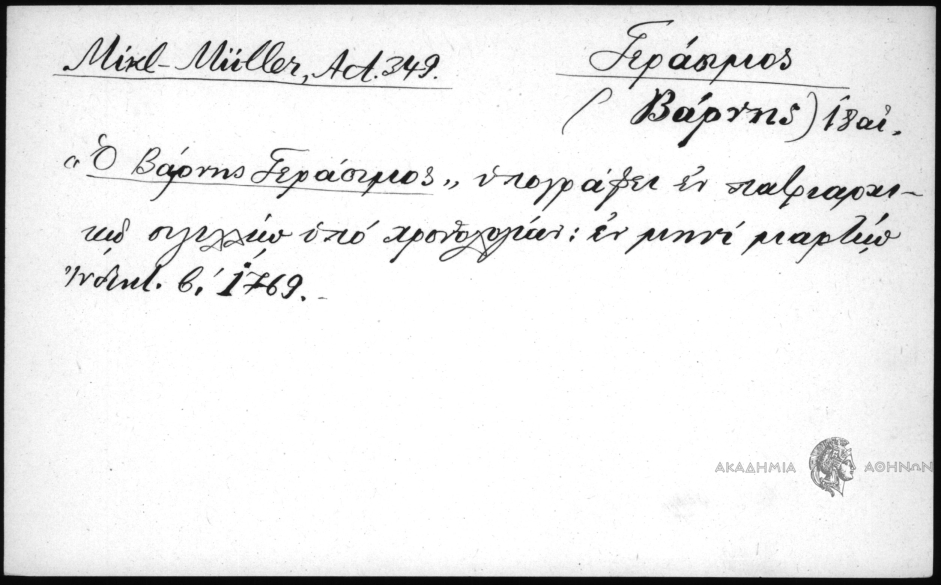 Mikl-Müller, Act. 349.
Γεράσιμος
(Βάρνης) 18 αἰ.
"Ὁ Βάρνης Γεράσιμος„ ὑπογράφει ἐν πατριαρχι-
κῷ σιγιλλίῳ ὑπό χρονολογίαν: ἐν μηνί μαρτίῳ
Ἰνδικτ. β΄. 1769.
ΑΚΑΔΗΜΙΑ ΑΘΗΝΩΝ